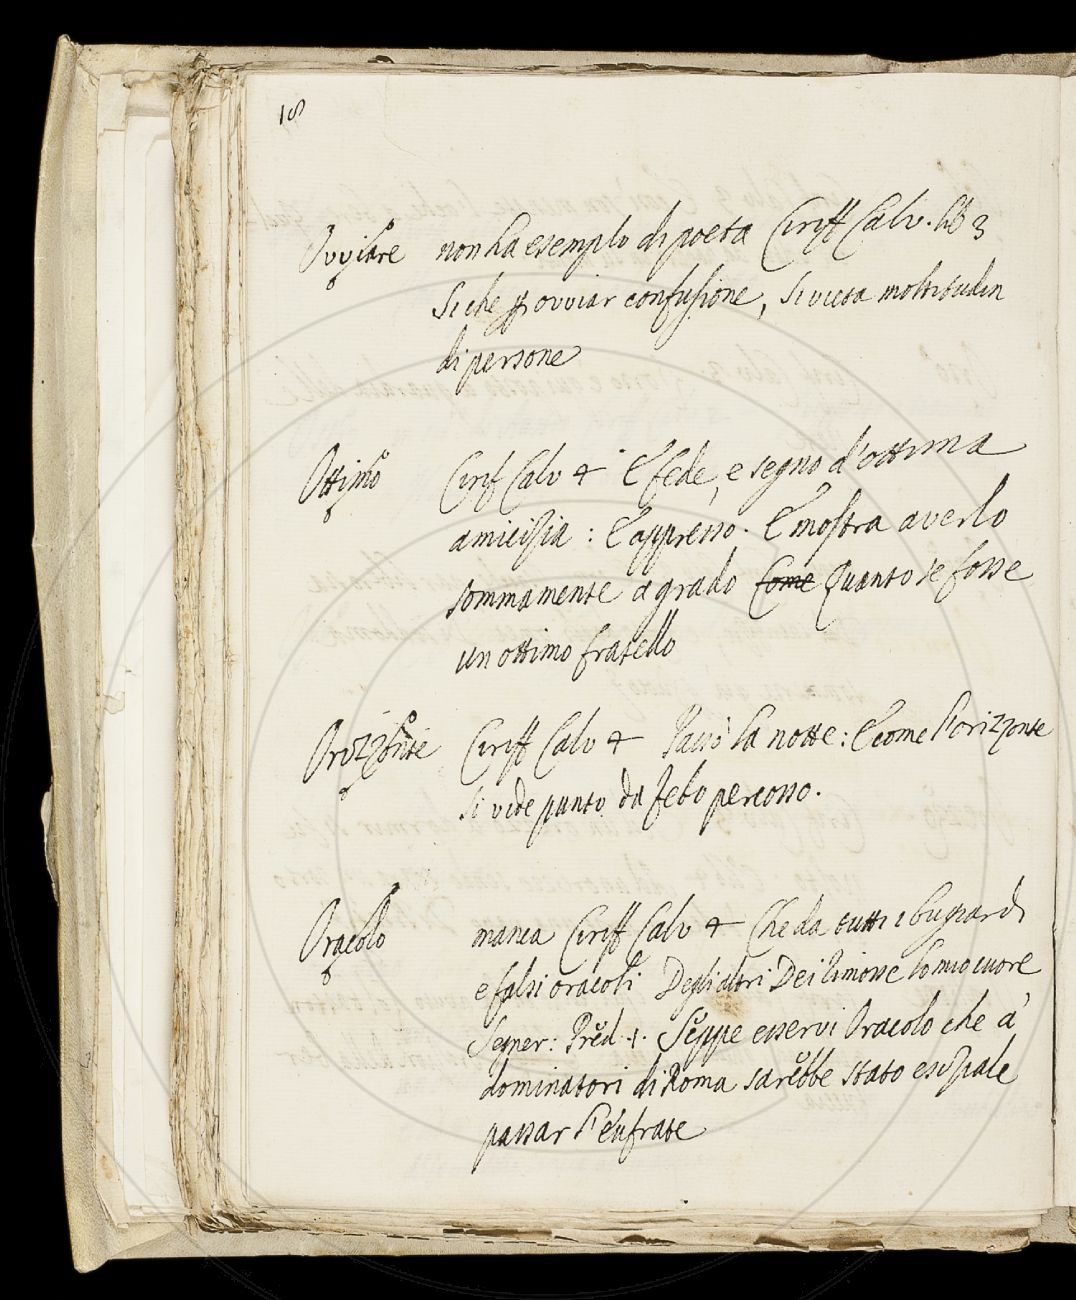 18
Ovviare non ha esemplo di poeta Ciriff Calv. lib 3
Si che p ovviar confusione, si vieta moltitudin
di persone
Ottimo Cirif Calv 4 E fede, e segno d'ottima
amicizia : E appresso. E mostra averlo
sommamente a grado Come Quanto se fosse
un ottimo fratello
Orizzonte Ciriff Calv 4 Passò la notte : E come l'orizzonte
si vide punto da Febo percosso.
Oracolo manca Ciriff Calv 4 Che da tutti i bugiardi
e falsi oracoli Degli altri Dei rimosse lo mio cuore
Segner: Pred. 1. Seppe esservi Oracolo che a'
dominatori di Roma sarebbe stato esiziale
passar l'eufrate